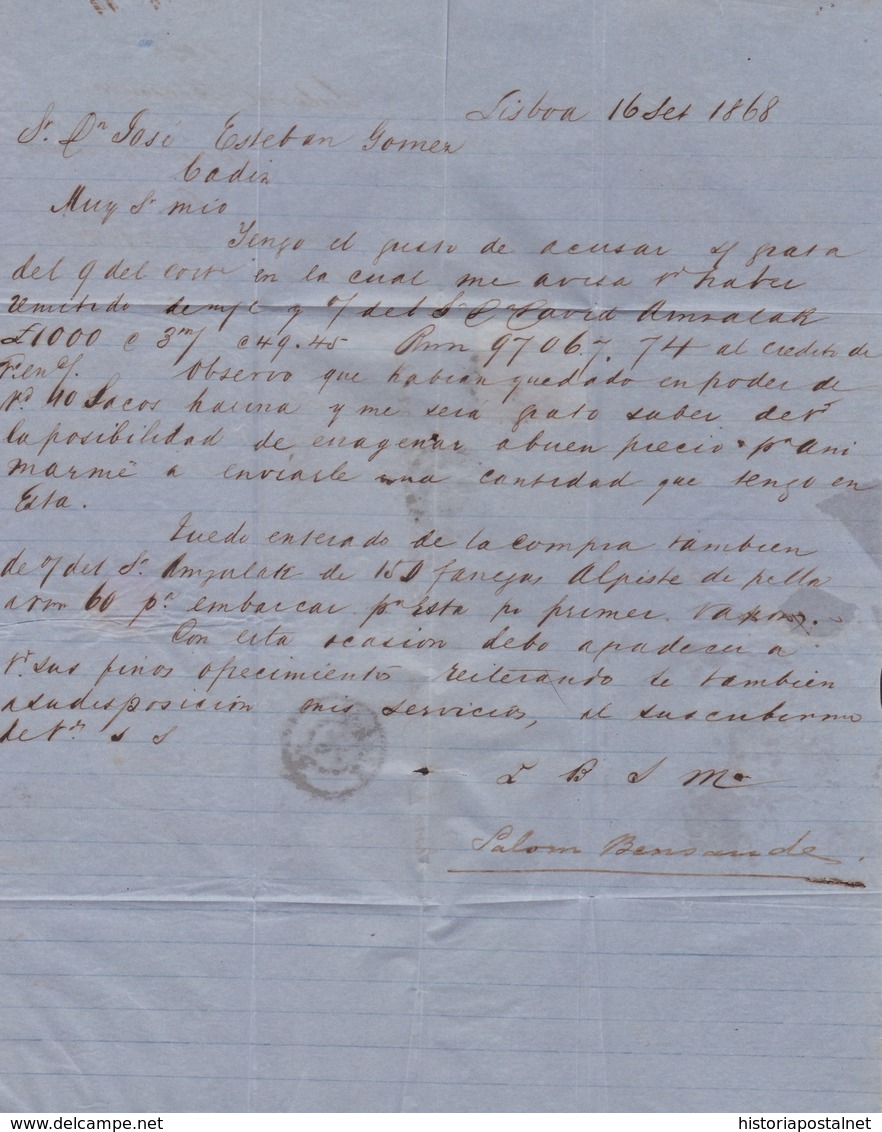 Lisboa 16 Set 1868
Sr. Dn José Esteban Gomez
Cadiz
Muy Sr mio
Tengo el gusto de acusar s/ grata
del 9 del corte en la cual me avisa Vd haber
remitido de m/c y o/ del Sr Dn David Amzalak
£1000 c 3 m/ c 49.45 Rvn 97067.74 al credito de
Observo que habian quedado en poder de
Vd 40 Sacos harina y me será grato saber de Vd
la posibilidad de enagenar a buen precio pa ani
marme a enviarle una cantidad que tengo en
Esta.
Quedo enterado de la compra tambien
de o/ del Sr. Amzalak de 150 fanegas Alpiste de pella
a rvn 60 pa embarcar pa Esta pr primer vapor.
Con esta ocasion debo agradecer a
Vd sus finos ofrecimientos reiterando le tambien
a su disposicion mis servicios, al suscribirme
de Vd s s
Q B S M
Salom Bensaude
historiapostalnet
www.delcampe.net